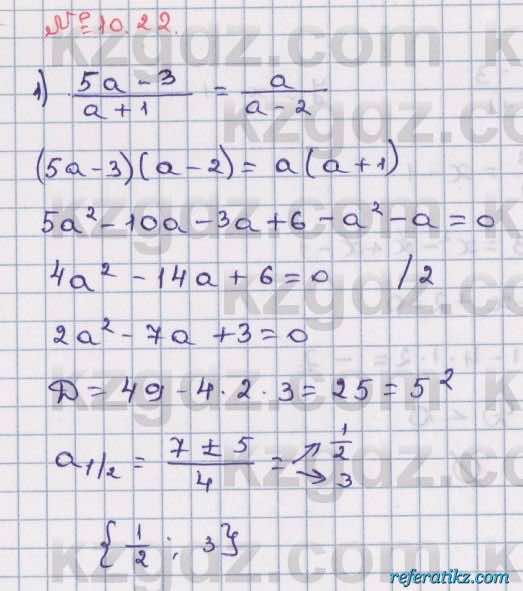 № 10.22.
1) (5a - 3)/(a + 1) = a/(a - 2)
(5a - 3)(a - 2) = a(a + 1)
5a² - 10a - 3a + 6 - a² - a = 0
4a² - 14a + 6 = 0 /2
2a² - 7a + 3 = 0
D = 49 - 4 · 2 · 3 = 25 = 5²
a₁/₂ = (7 ± 5)/4 = ↗ 1/2 ↘ 3
{1/2; 3}
referatikz.com
kzgdz.com